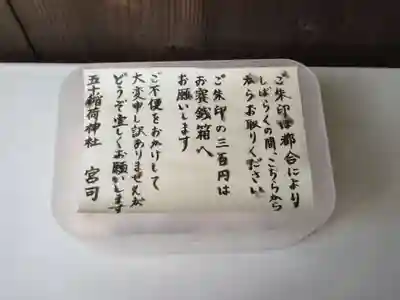 ご朱印は都合により
しばらくの間、こちらから
お取りください
ご朱印の三百円は
お賽銭箱へ
お願いします
ご不便をおかけして
大変申し訳ありませんが
どうぞ宜しくお願いします
五十稲荷神社 宮司